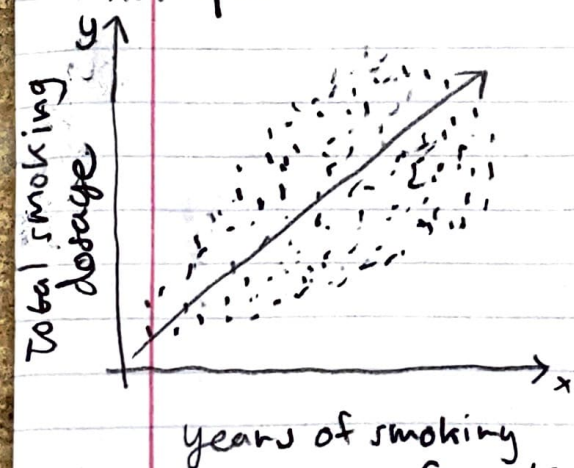 y
Total smoking
dosage
x
years of smoking